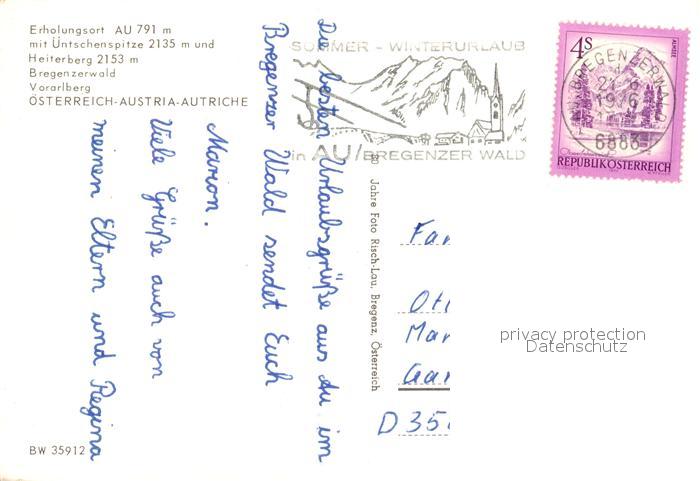 Erholungsort AU 791 m
mit Üntschenspitze 2135 m und
Heiterberg 2153 m
Bregenzerwald
Vorarlberg
ÖSTERREICH-AUSTRIA-AUTRICHE
SOMMER - WINTERURLAUB
in AU/BREGENZER WALD
4S
ALMSEE
BREGENZERWALD
6883
REPUBLIK ÖSTERREICH
Die besten Urlaubsgrüße aus Au im
Bregenzer Wald sendet Euch
Marion.
Viele Grüße auch von
meinen Eltern und Regina
80 Jahre Foto Risch-Lau, Bregenz, Österreich
Fam
Ott
Mar
Gar
D 35
privacy protection
Datenschutz
BW 35912